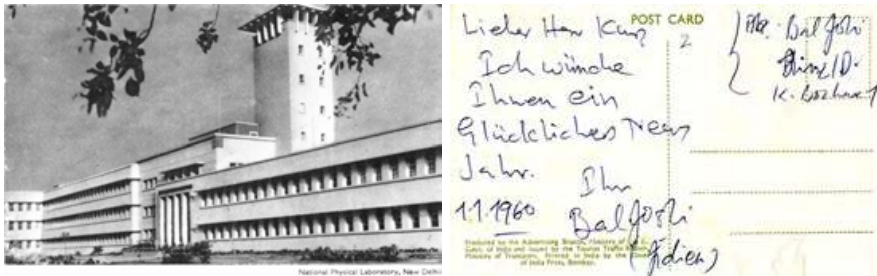 National Physical Laboratory, New Delhi
POST CARD
2
Lieber Herr Kunz
Ich wünsche
Ihnen ein
Glückliches Neues
Jahr.
Ihr
1.1.1960
Bal Joshi
(Indien)
Bal Joshi
Produced by the Advertising Branch, Ministry of
Govt. of India and issued by the Tourist Traffic
Ministry of Transport. Printed in India by the
of India Press, Bombay.